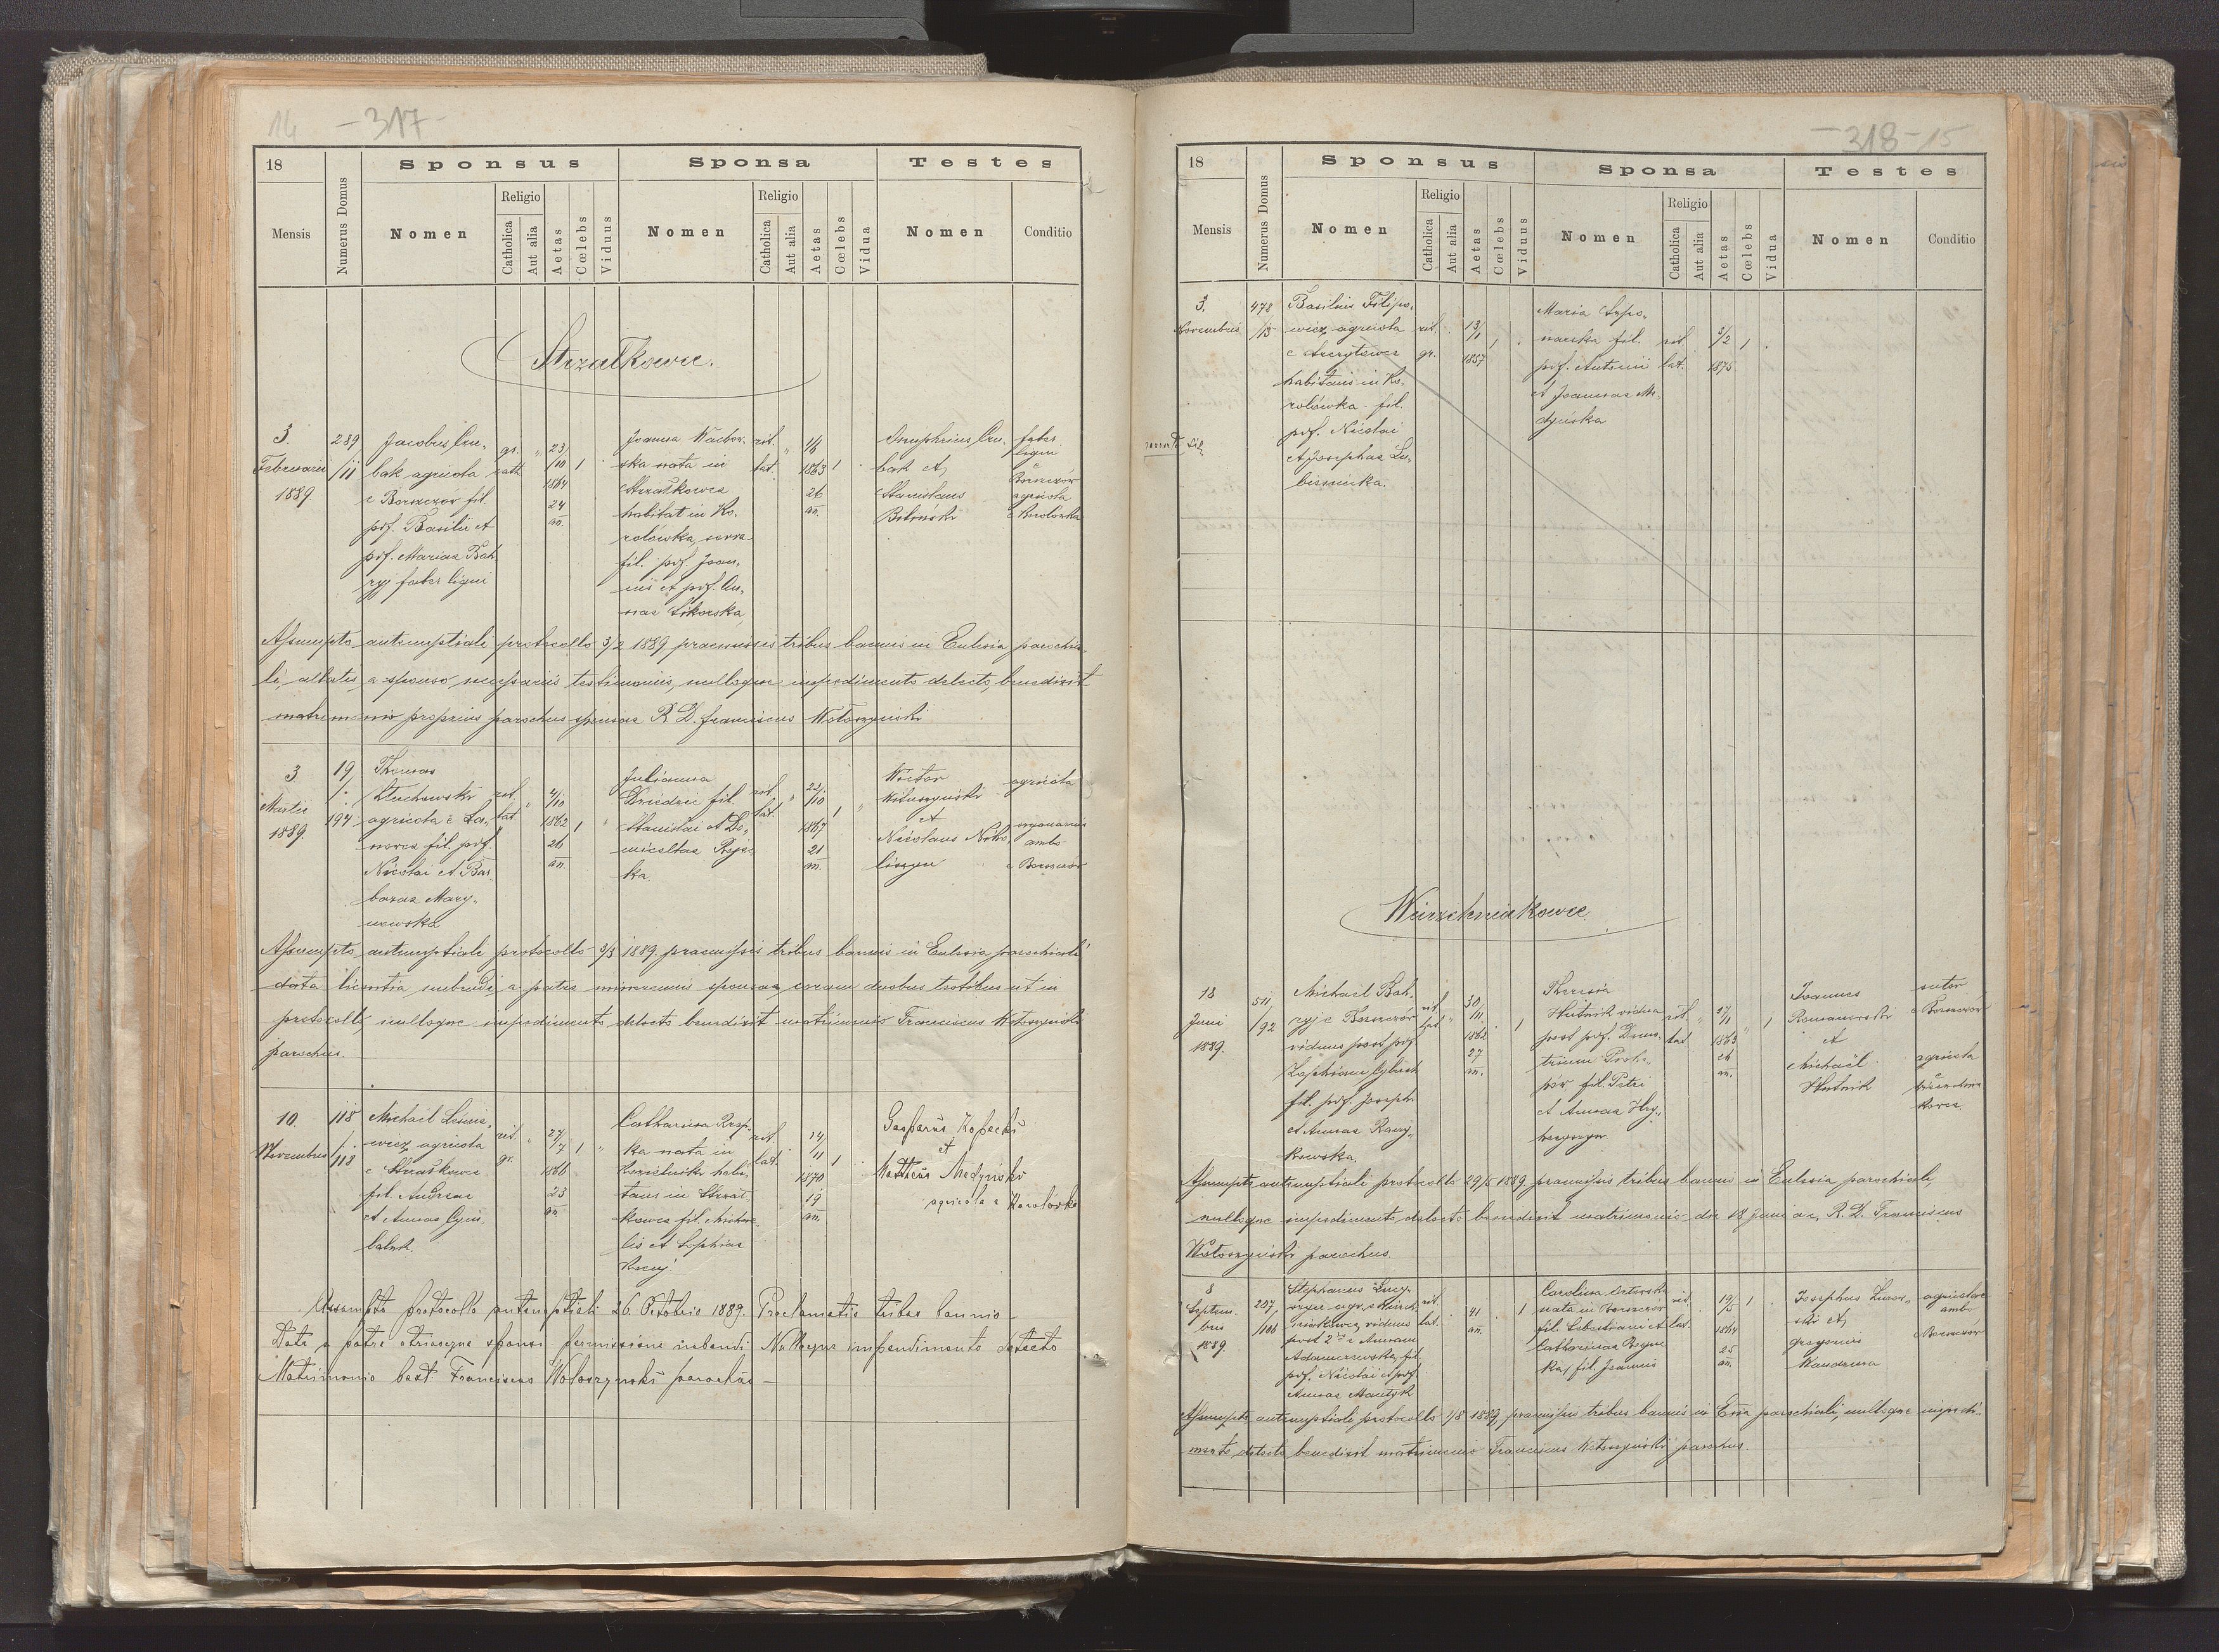 14 -317-
18
Mensis
Numerus Domus
Sponsus
Nomen
Religio
Catholica
Aut alia
Aetas
Cœlebs
Viduus
Sponsa
Nomen
Religio
Catholica
Aut alia
Aetas
Cœlebs
Vidua
Testes
Nomen
Conditio
Strzałkowce.
3
Februarii
1889.
289
/11
Jacobus
bak agricola
e Borszczow fil.
pdf. Basilii et
pdf. Mariae Bah
ryj faber ligni
gr.
cath
23/
/10
1864
24
an.
1
Joanna
ska nata in
Strzałkowce
habitat in Ko,
rolówka, serva
fil. pdf. Joan,
nis et pdf. An,
nae Sikorska
rit.
lat.
1863
26
an.
1
Onuphrius
bak et
Stanislaus
faber
ligni
e
Borszczów
agricola
e Korolówka
Assumpto antenuptiali protocollo 3/2 1889 praemissis tribus bannis in Ecclesia parochia
li, allatis a sponso necessariis testimoniis, nulloque impedimento detecto, benedixit
matrimonio proprius parochus sponsae R. D. Franciscus Wołoszyński
3
Martii
1889.
19
/.
194
Thomas
Kluchowski
agricola e La,
nowce fil. pdf.
Nicolai et Bar
barae Mary,
newska
rit.
lat.
4/
/10
1862
26
an.
1
Julianna
Dziedzic fil.
Stanislai et Do,
micellae
ka.
rit.
lat.
22/
/10
1867
21
an.
1
Wictor
et
Nicolaus
agricola
ambo
e Borszczów
Assumpto antenuptiali protocollo 3/3 1889. praemissis tribus bannis in Ecclesia parochiali
data licentia nubendi a patre minorennis sponsae coram duobus testibus ut in
protocollo, nulloque impedimento detecto benedixit matrimonio Franciscus Wołoszyński
parochus.
10.
Novembris
118
/.
118
Michael
wicz, agricola
e Strzałkowce
fil. Andreae
et Annae
rit.
gr.
27/
/7
1866
23
an.
1
Catharina
ka nata in
habi,
tans in Strzał,
kowce fil. Micha,
lis et Sophiae
rit.
lat.
14/
/11
1870
19
an.
1
Gasparus Kopecki
et
Mattheus Medyński
agricola e Korolówka
Assumpto protocollo antenuptiali 26 Octobris 1889. Proclamatis tribus bannis
Data a patre utriusque sponsi permissione nubendi Nulloque impendimento detecto
Matrimonio bedt. Franciscus Wołoszynski parochus
-318-15
18
Mensis
Numerus Domus
Sponsus
Nomen
Religio
Catholica
Aut alia
Aetas
Cœlebs
Viduus
Sponsa
Nomen
Religio
Catholica
Aut alia
Aetas
Cœlebs
Vidua
Testes
Nomen
Conditio
3.
Novembris
478
/13
Basilius Filipo,
wicz, agricola
e
habitans in Ko,
rolówka fil.
pdf. Nicolai
et Josephae Lu,
rit.
gr.
13/
/1
1857
1
Maria
fil.
pdf. Antonii
et Joannae Me,
dyńska
rit.
lat.
2/2
1875
1
Wierzchniakowce
18
Juni
1889.
511
/92
Michael Bah,
ryj e Borszczów
viduus post pdf
Zophiam
fil. pdf. Josephi
et Annae
kowska.
rit.
lat.
30/
/11
1862
27
an.
1
Theresia
Hutnik vidua
post pdf. Dmi,
trium
fil. Petri
et Annae
rit.
lat.
1863
26
an.
1
Joannes
Romanowski
et
Michaël
Hutnik
sutor
e Borszczów
agricola
e
Assumpto antenuptiali protocollo 29/5 1889 praemissis tribus bannis in Ecclesia parochiali,
nulloque impedimento detecto benedixit matrimonio die 18 Juni ac. R. D. Franciscus
Wołoszyński parochus.
8
Septem.
bris
1889.
207,
/106
Stephanus
agr. e Wierzch
niakowce, viduus
post 2dis Annam
Adamczewska, fil.
pdf. Nicolai et pdf.
Annae
rit.
lat.
41
an.
1
Carolina
nata in Borszczów
fil. Sebastiani et
Catharinae
ka, fil. Joannis
rit.
lat.
19/
/5
1864
25
an.
1
Josephus
ski et
Gregorius
agricolae
ambo
e Borszczów
Assumpto antenuptiali protocollo 1889, praemissis tribus bannis in Ecca parochiali, nulloque impedi-
mento detecto benedixit matrimonio Franciscus Wołoszyński parochus.